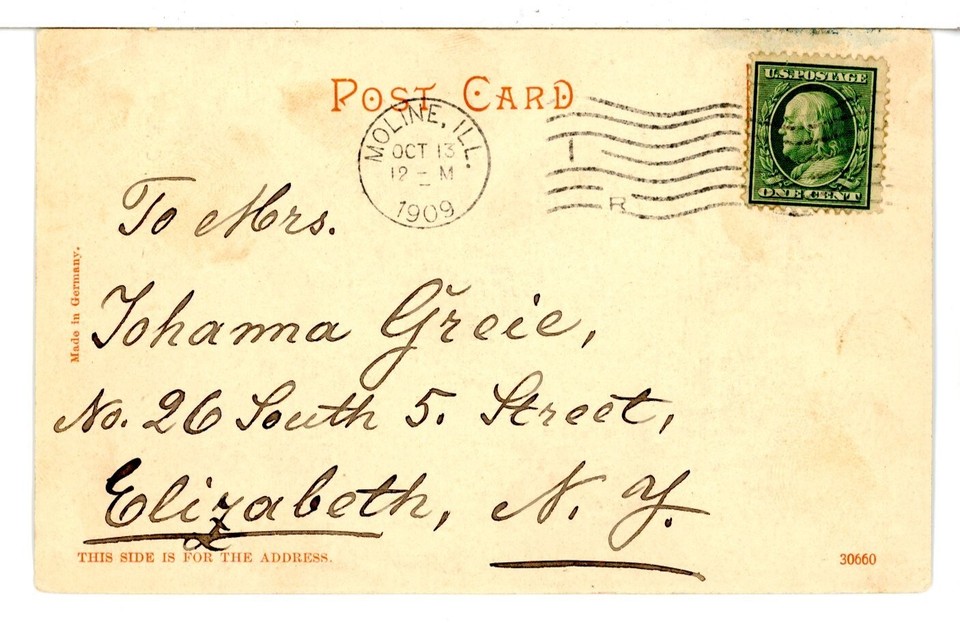 POST CARD
U.S. POSTAGE
MOLINE, ILL.
OCT 13
12 - M
1909
R
ONE CENT
To Mrs.
Johanna Greie,
No. 26 South 5. Street,
Elizabeth, N. Y.
Made in Germany.
THIS SIDE IS FOR THE ADDRESS.
30660